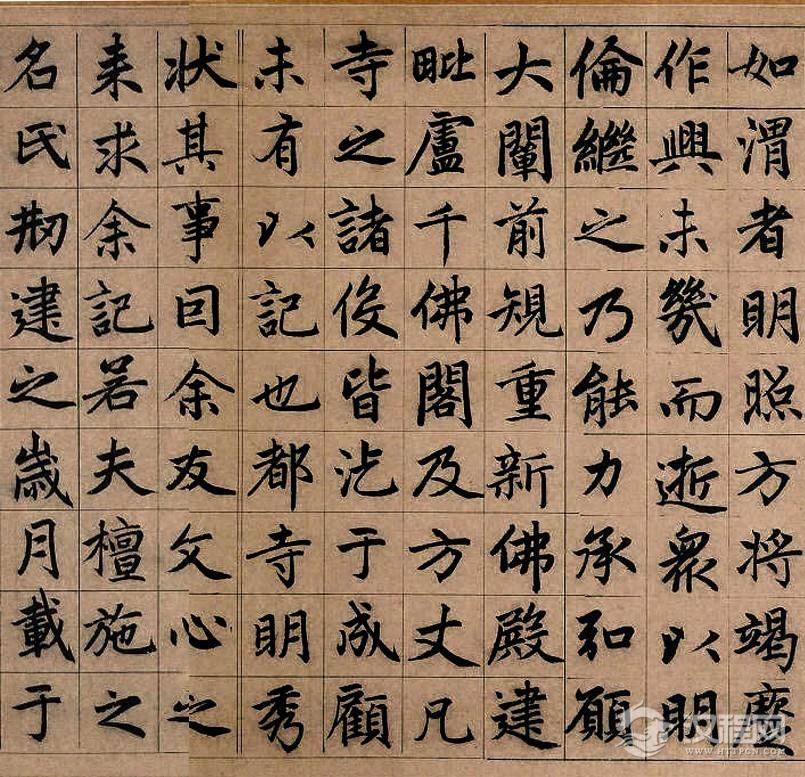 如渭者明照方將竭慶
作興未幾而逝衆以明
倫繼之乃能力承弘願
大闡前規重新佛殿建
毗盧千佛閣及方丈凡
寺之諸役皆汔于成顧
未有以記也都寺明秀
状其事因余友文心之
来求余記若夫檀施之
名氏刱建之歲月載于
汉程网
WWW.HTTPCN.COM